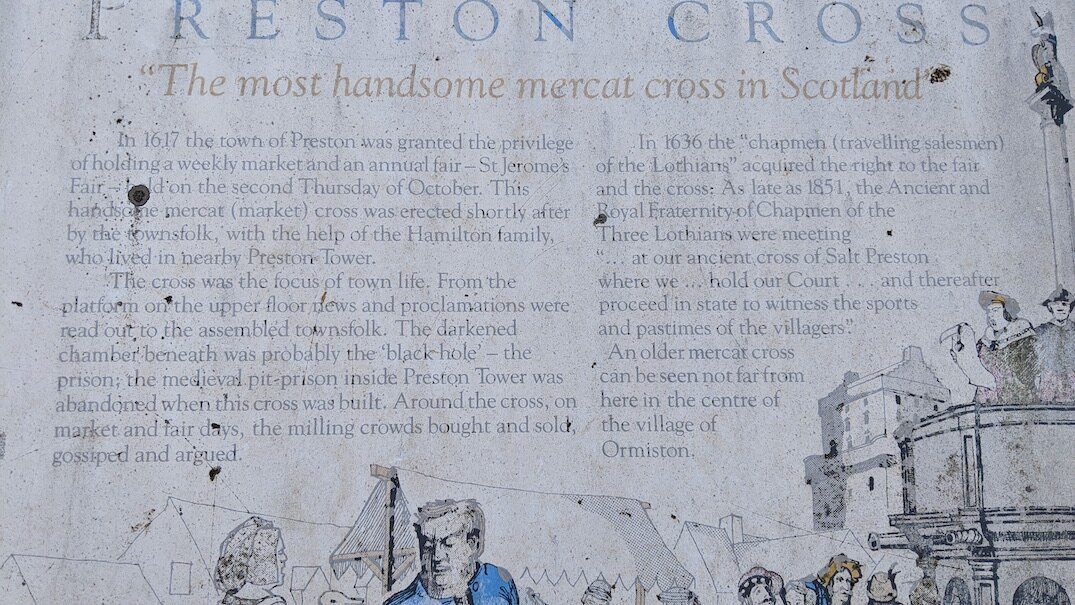 PRESTON CROSS
“The most handsome mercat cross in Scotland”
In 1617 the town of Preston was granted the privilege
of holding a weekly market and an annual fair – St Jerome’s
Fair – held on the second Thursday of October. This
handsome mercat (market) cross was erected shortly after
by the townsfolk, with the help of the Hamilton family,
who lived in nearby Preston Tower.
The cross was the focus of town life. From the
platform on the upper floor news and proclamations were
read out to the assembled townsfolk. The darkened
chamber beneath was probably the ‘black-hole’ – the
prison; the medieval pit-prison inside Preston Tower was
abandoned when this cross was built. Around the cross, on
market and fair days, the milling crowds bought and sold,
gossiped and argued.
In 1636 the “chapmen (travelling salesmen)
of the Lothians” acquired the right to the fair
and the cross. As late as 1851, the Ancient and
Royal Fraternity of Chapmen of the
Three Lothians were meeting
“... at our ancient cross of Salt Preston
where we ... hold our Court . . . and thereafter
proceed in state to witness the sports
and pastimes of the villagers”.
An older mercat cross
can be seen not far from
here in the centre of
the village of
Ormiston.